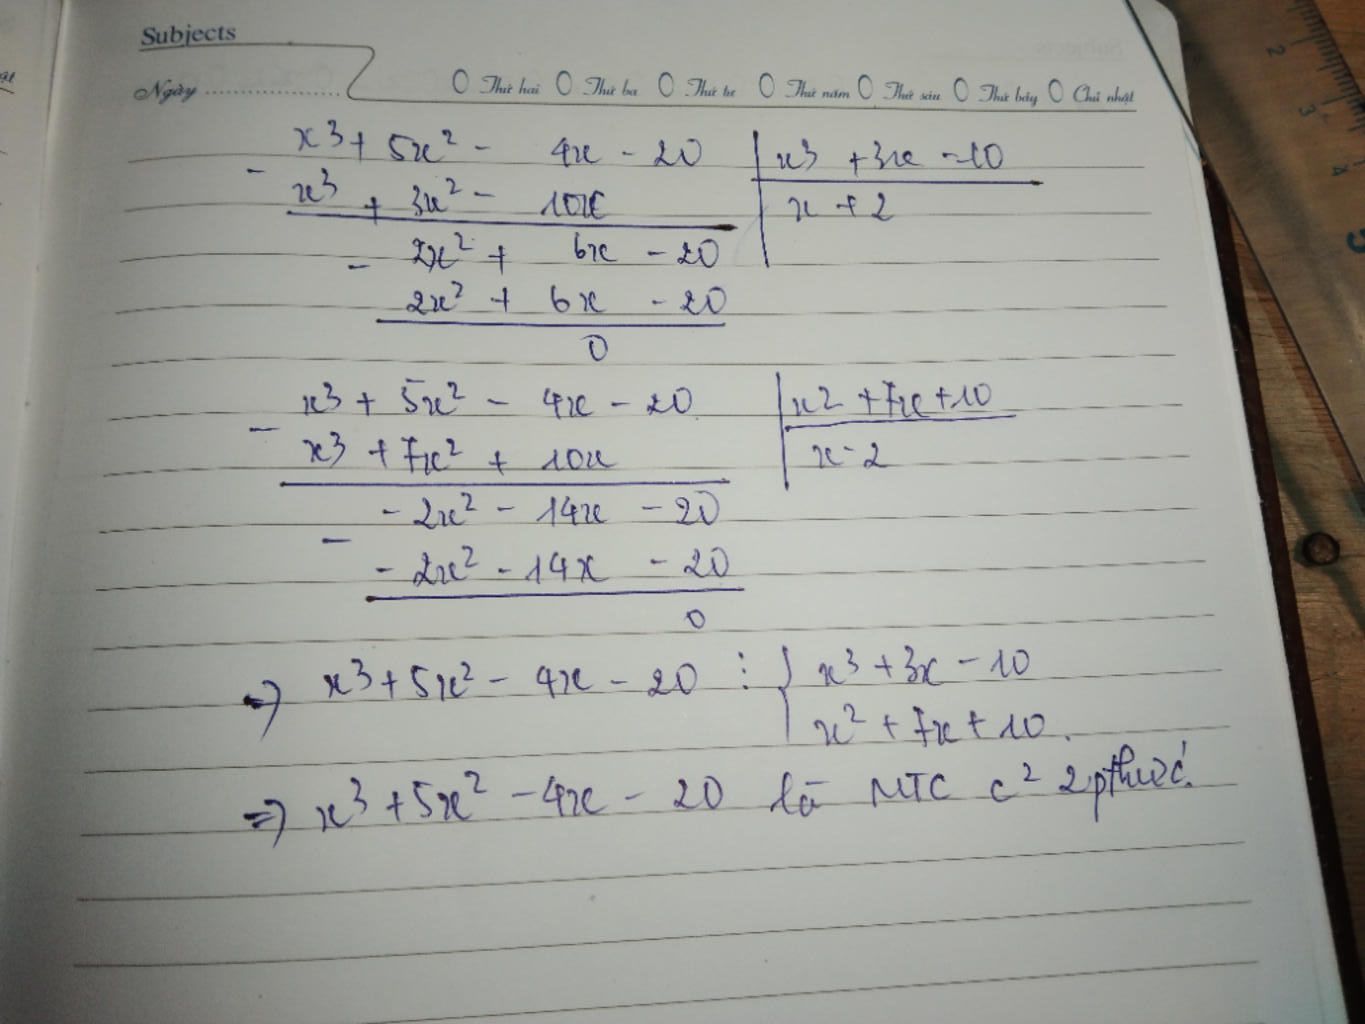 Subjects
Ngày ................... O Thứ hai O Thứ ba O Thứ tư O Thứ năm O Thứ sáu O Thứ bảy O Chủ nhật
x³ + 5x² - 4x - 20 | x³ + 3x - 10
- x³ + 3x² - 10x | x + 2
2x² + 6x - 20
- 2x² + 6x - 20
0
x³ + 5x² - 4x - 20 | x2 + 7x + 10
- x³ + 7x² + 10x | x - 2
- 2x² - 14x - 20
- - 2x² - 14x - 20
0
=> x³ + 5x² - 4x - 20 ⋮ { x³ + 3x - 10
x² + 7x + 10.
=> x³ + 5x² - 4x - 20 là MTC c² 2 pthức
2
3
4
5